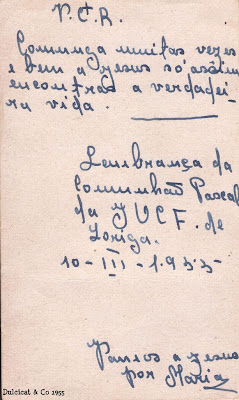 P.†C.R.
Comunga muitas vezes
e bem a Jesus só assim
encontras a verdadei-
ra vida.
Lembrança da
Comunhão Pascal
da JUCF. de
Loriga.
10-III-1955-
Vamos a Jesus
por Maria
Dulcicat & Co 1955